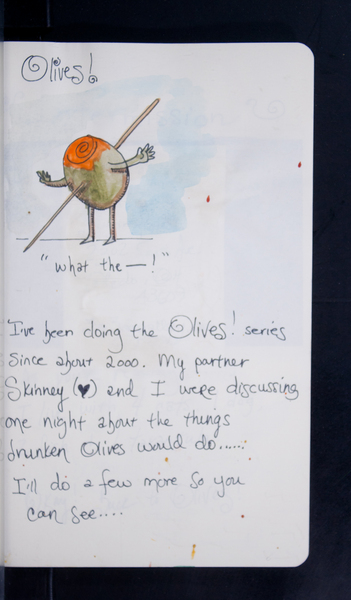 Olives!
"what the—!"
I've been doing the Olives! series
since about 2000. My partner
Skinney (♥) and I were discussing
one night about the things
drunken Olives would do.....
I'll do a few more so you
can see....